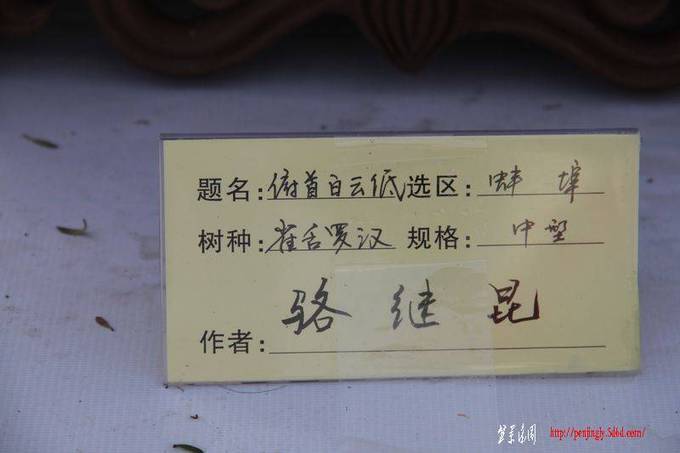 题名:俯首白云低 选区:蚌埠
树种:雀舌罗汉 规格:中型
作者:骆继昆
http://penjingly.5d6d.com/